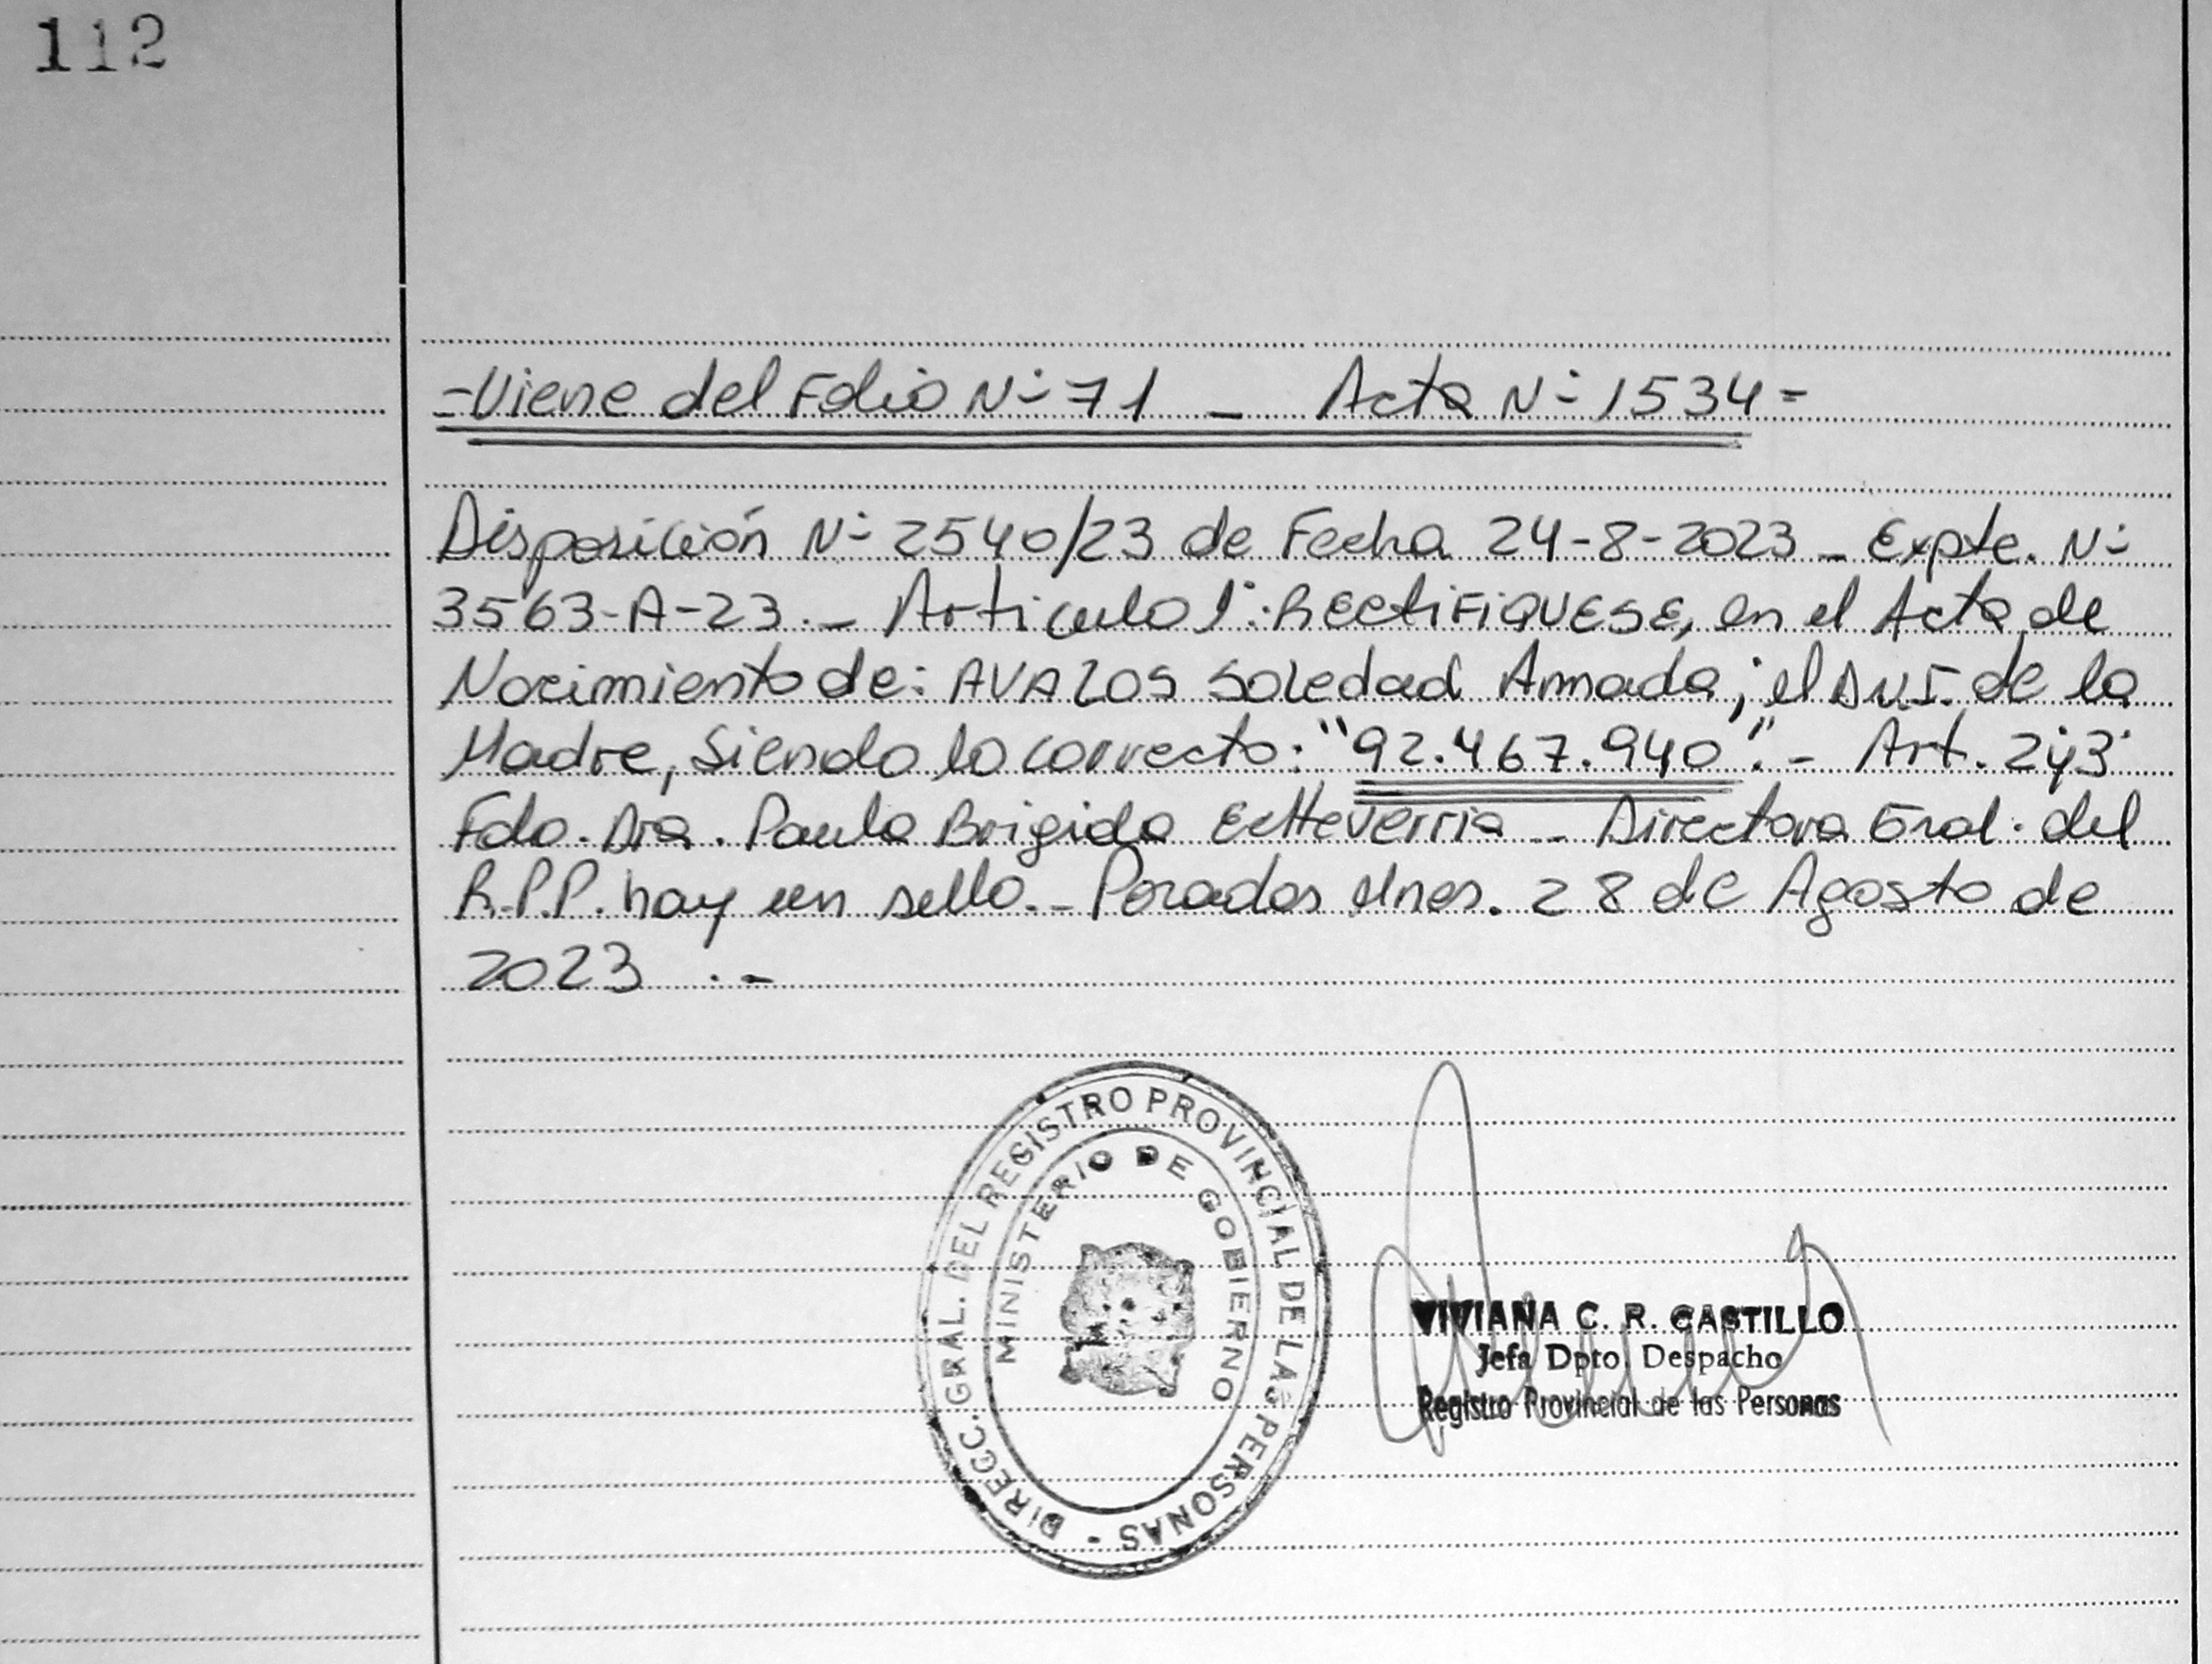 112
=Viene del Folio N° 71 _ Acta N° 1534=
Disposición N° 2540/23 de Fecha 24-8-2023 _ Expte. N°
3563-A-23._ Articulo 1°: RECtiFIQUESE, en el Acta de
Nacimiento de: AVALOS Soledad Amada; el D.N.I. de la
Madre, siendo lo correcto: "92.467.940".- Art. 2y3°
Fdo. Dra. Paula Brigida Echeverria _ Directora Gral. del
R.P.P. hay un sello._ Posadas Mnes. 28 de Agosto de
2023 .-
DIRECC. GRAL. DEL REGISTRO PROVINCIAL DE LAS PERSONAS -
MINISTERIO DE GOBIERNO
VIVIANA C. R. CASTILLO
Jefa Dpto. Despacho
Registro Provincial de las Personas